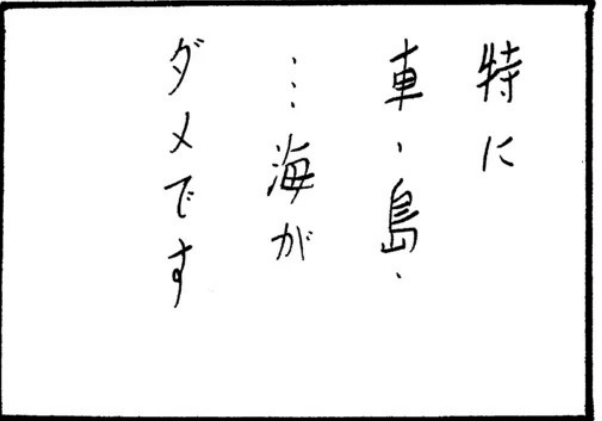 特に
車、島、
……海が
ダメです